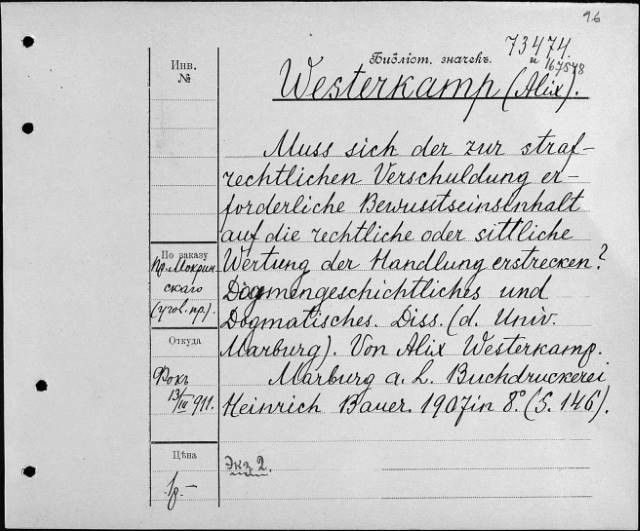 96
Библіот. значекъ.
73474
и 167578
Инв.
№
Westerkamp (Alix).
Muss sich der zur straf-
rechtlichen Verschuldung er-
forderliche Bewusstseinsinhalt
auf die rechtliche oder sittliche
Wertung der Handlung erstrecken?
Dogmengeschichtliches und
Dogmatisches. Diss. (d. Univ.
Marburg). Von Alix Westerkamp.
Marburg a. L. Buchdruckerei
Heinrich Bauer. 1907 in 8° (S. 146).
По заказу
пр. Мокрин-
скаго
(угов. пр.).
Откуда
Фокъ
13/III 911.
Цѣна
1р. –
Экз. 2.